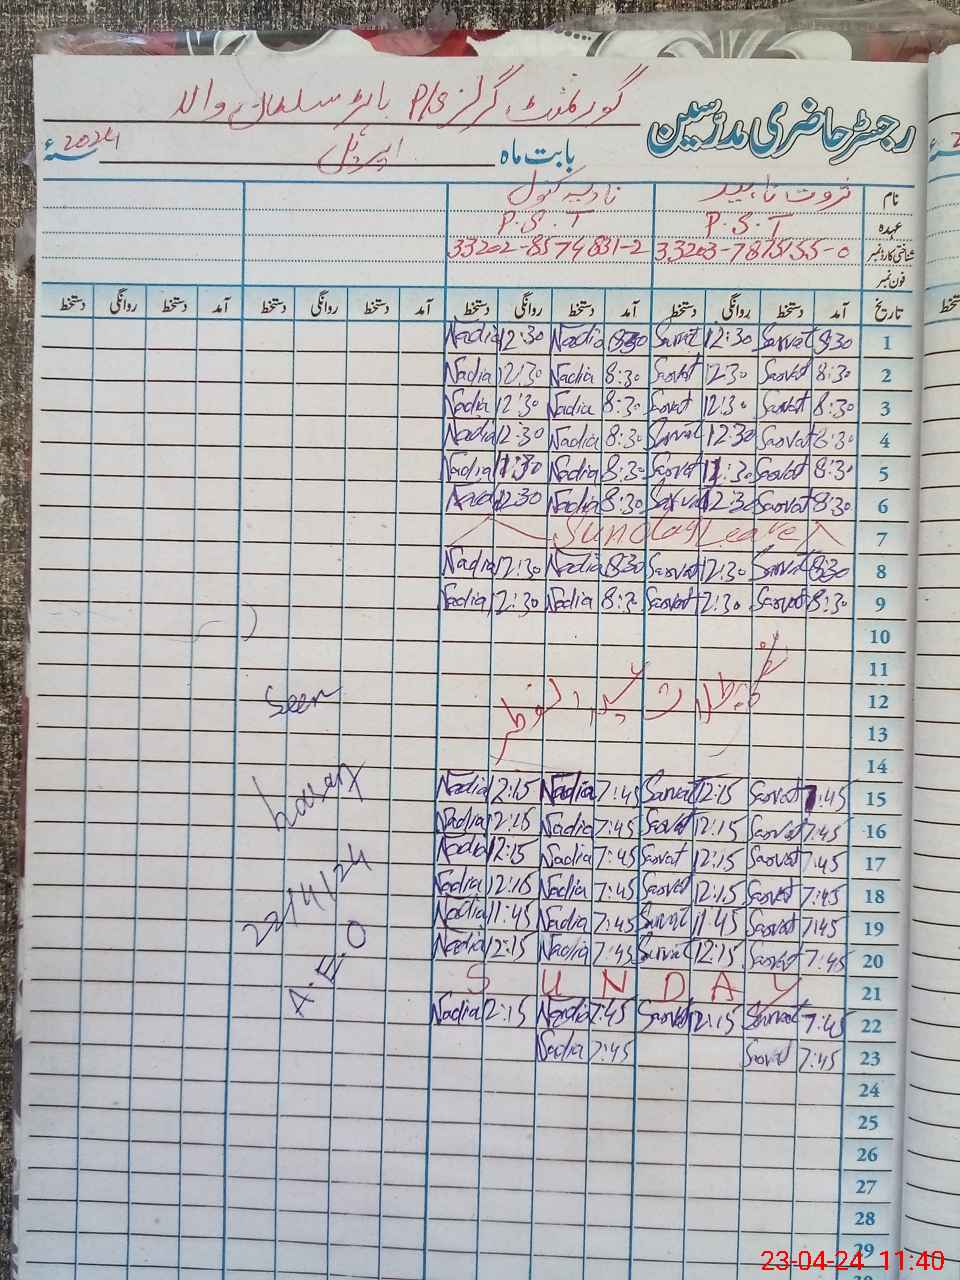 رجسٹر حاضری مدرسین گورنمنٹ گرلز P/S سلطان والہ
بابت ماہ اپریل 2024 سنہ ء
نام ثروت ناہید نادیہ کنول
عہدہ P.S.T P.S.T
شناختی کارڈ نمبر 33202-8574831-2
فون نمبر
تاریخ آمد دستخط روانگی دستخط آمد دستخط روانگی دستخط آمد دستخط روانگی دستخط آمد دستخط روانگی دستخط
Nadia 12:30 Nadia 8:30 Sarvat 12:30 Sarvat 8:30 1
Nadia 12:30 Nadia 8:30 Sarvat 12:30 Sarvat 8:30 2
Nadia 12:30 Nadia 8:30 Sarvat 12:30 Sarvat 8:30 3
Nadia 12:30 Nadia 8:30 Sarvat 12:30 Sarvat 8:30 4
Nadia 11:30 Nadia 8:30 Sarvat 11:30 Sarvat 8:30 5
Nadia 12:30 Nadia 8:30 Sarvat 12:30 Sarvat 8:30 6
Sunday Leave 7
Nadia 12:30 Nadia 8:30 Sarvat 12:30 Sarvat 8:30 8
Nadia 12:30 Nadia 8:30 Sarvat 12:30 Sarvat 8:30 9
10
11
Seen تعطیلات عید الفطر 12
13
14
Nadia 12:15 Nadia 7:45 Sarvat 12:15 Sarvat 7:45 15
Nadia 12:15 Nadia 7:45 Sarvat 12:15 Sarvat 7:45 16
Nadia 12:15 Nadia 7:45 Sarvat 12:15 Sarvat 7:45 17
22/4/24 Nadia 12:15 Nadia 7:45 Sarvat 12:15 Sarvat 7:45 18
Nadia 11:45 Nadia 7:45 Sarvat 11:45 Sarvat 7:45 19
A.E.O Nadia 12:15 Nadia 7:45 Sarvat 12:15 Sarvat 7:45 20
SUNDAY 21
Nadia 12:15 Nadia 7:45 Sarvat 12:15 Sarvat 7:45 22
Nadia 7:45 Sarvat 7:45 23
24
25
26
27
28
29
23-04-24 11:40